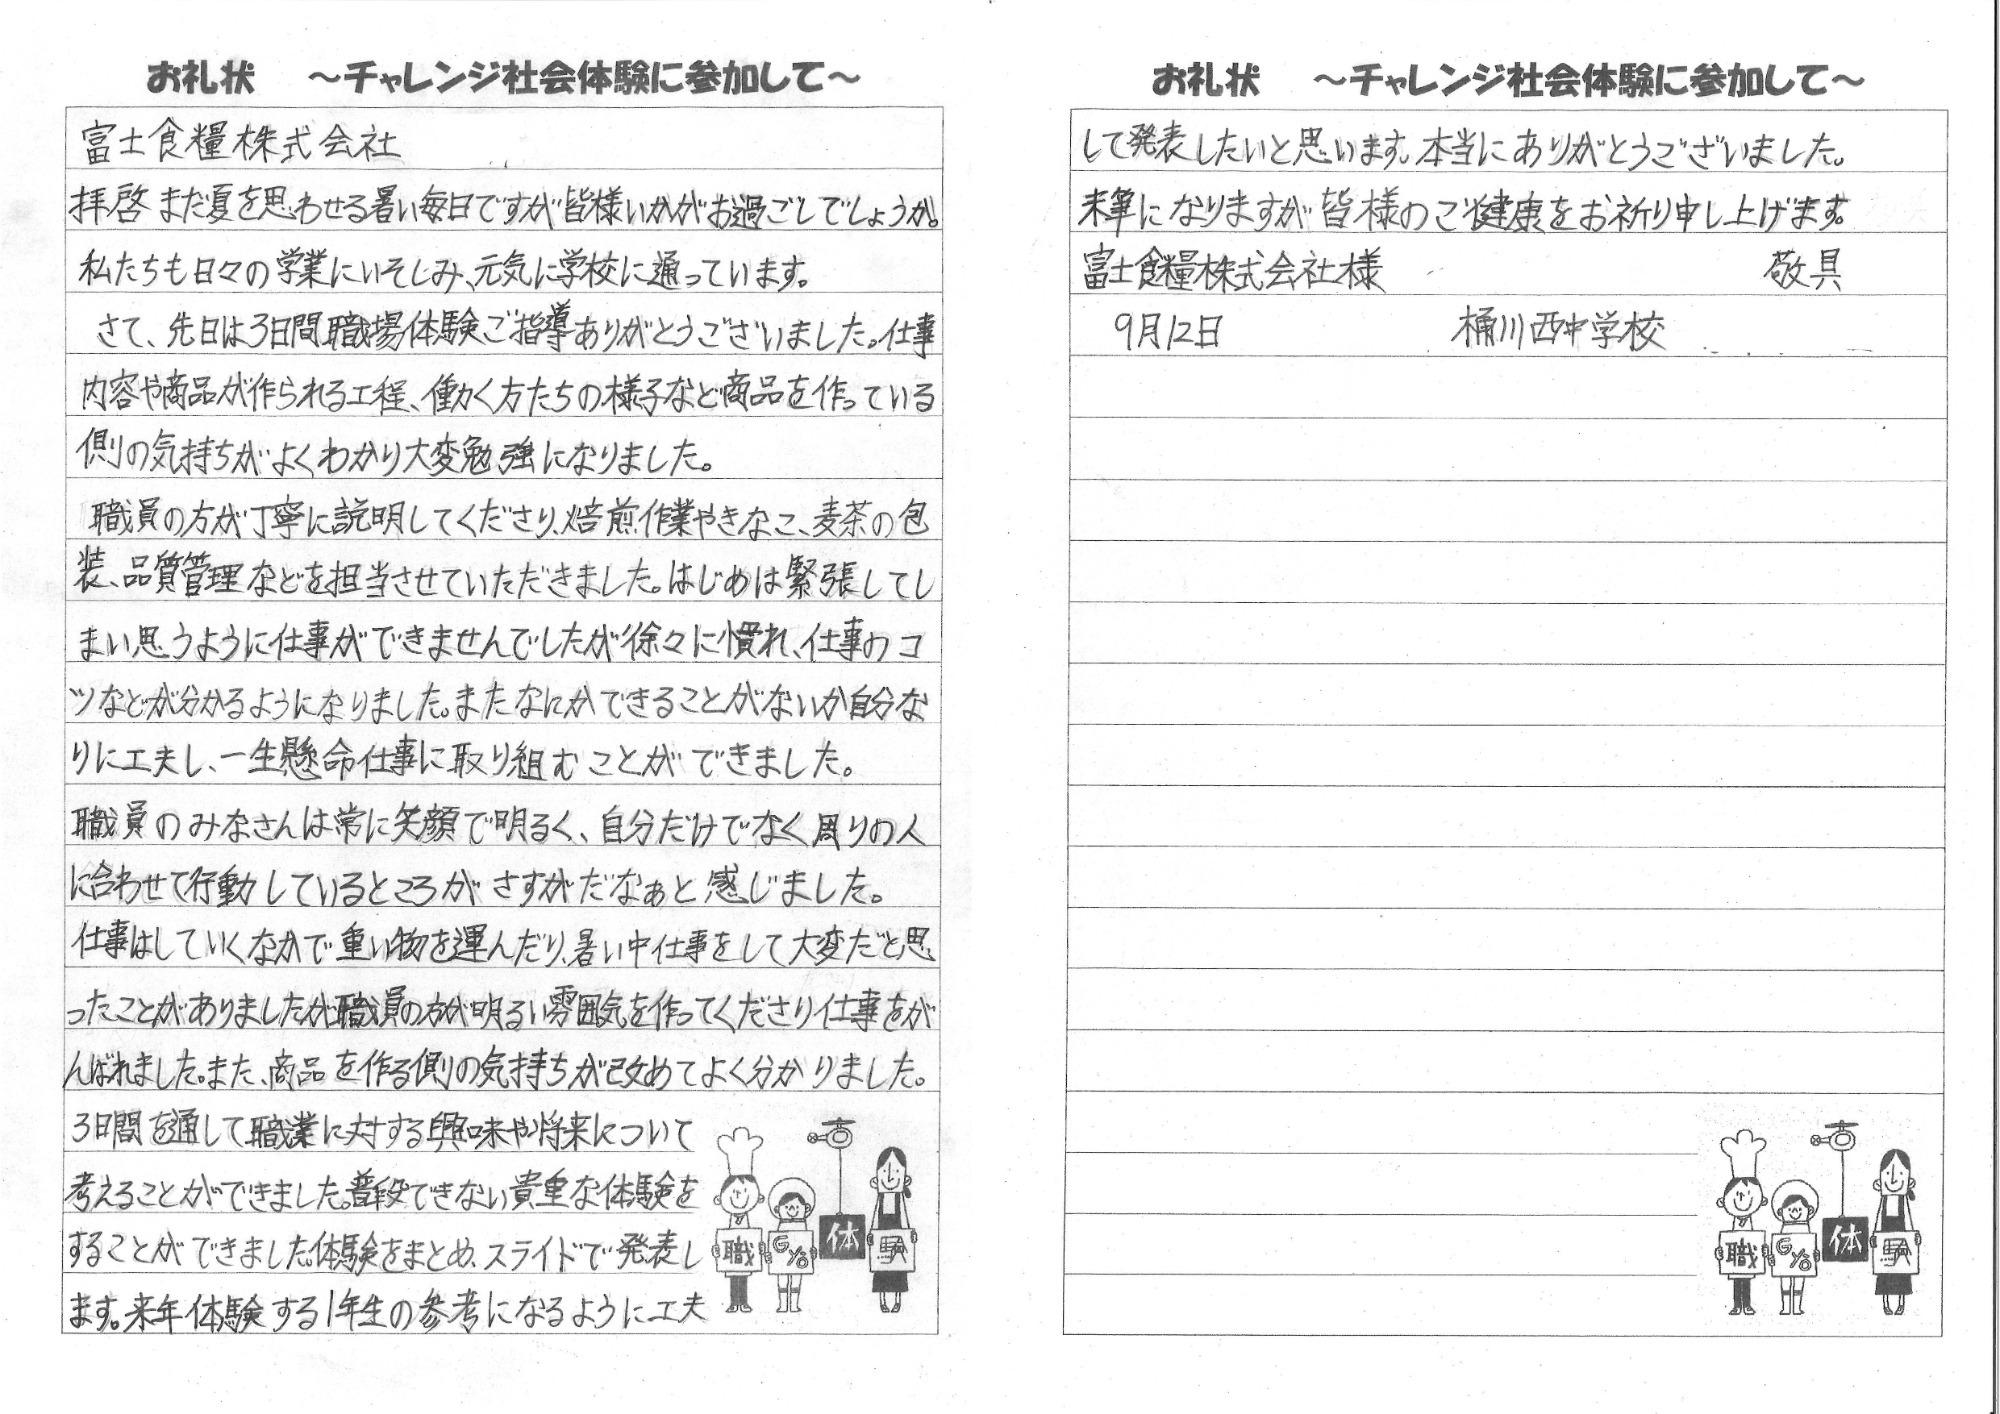 お礼状　～チャレンジ社会体験に参加して～
富士食糧株式会社
拝啓 まだ夏を思わせる暑い毎日ですが皆様いかがお過ごしでしょうか。
私たちも日々の学業にいそしみ、元気に学校に通っています。
さて、先日は3日間職場体験ご指導ありがとうございました。仕事
内容や商品が作られる工程、働く方たちの様子など商品を作っている
側の気持ちがよくわかり大変勉強になりました。
職員の方が丁寧に説明してくださり、焙煎作業やきなこ、麦茶の包
装、品質管理などを担当させていただきました。はじめは緊張してし
まい思うように仕事ができませんでしたが徐々に慣れ、仕事のコ
ツなどが分かるようになりました。またなにかできることがないか自分な
りに工夫し、一生懸命仕事に取り組むことができました。
職員のみなさんは常に笑顔で明るく、自分だけでなく周りの人
に合わせて行動しているところがさすがだなぁと感じました。
仕事はしていくなかで重い物を運んだり、暑い中仕事をして大変だと思
ったことがありましたが職員の方が明るい雰囲気を作ってくださり仕事をが
んばれました。また、商品を作る側の気持ちが改めてよく分かりました。
3日間を通して職業に対する興味や将来について
考えることができました。普段できない貴重な体験を
することができました。体験をまとめ、スライドで発表し
ます。来年体験する1年生の参考になるように工夫
職
GYO
体
験
お礼状　～チャレンジ社会体験に参加して～
して発表したいと思います。本当にありがとうございました。
末筆になりますが皆様のご健康をお祈り申し上げます。
富士食糧株式会社様　敬具
9月12日　桶川西中学校
職
GYO
体
験